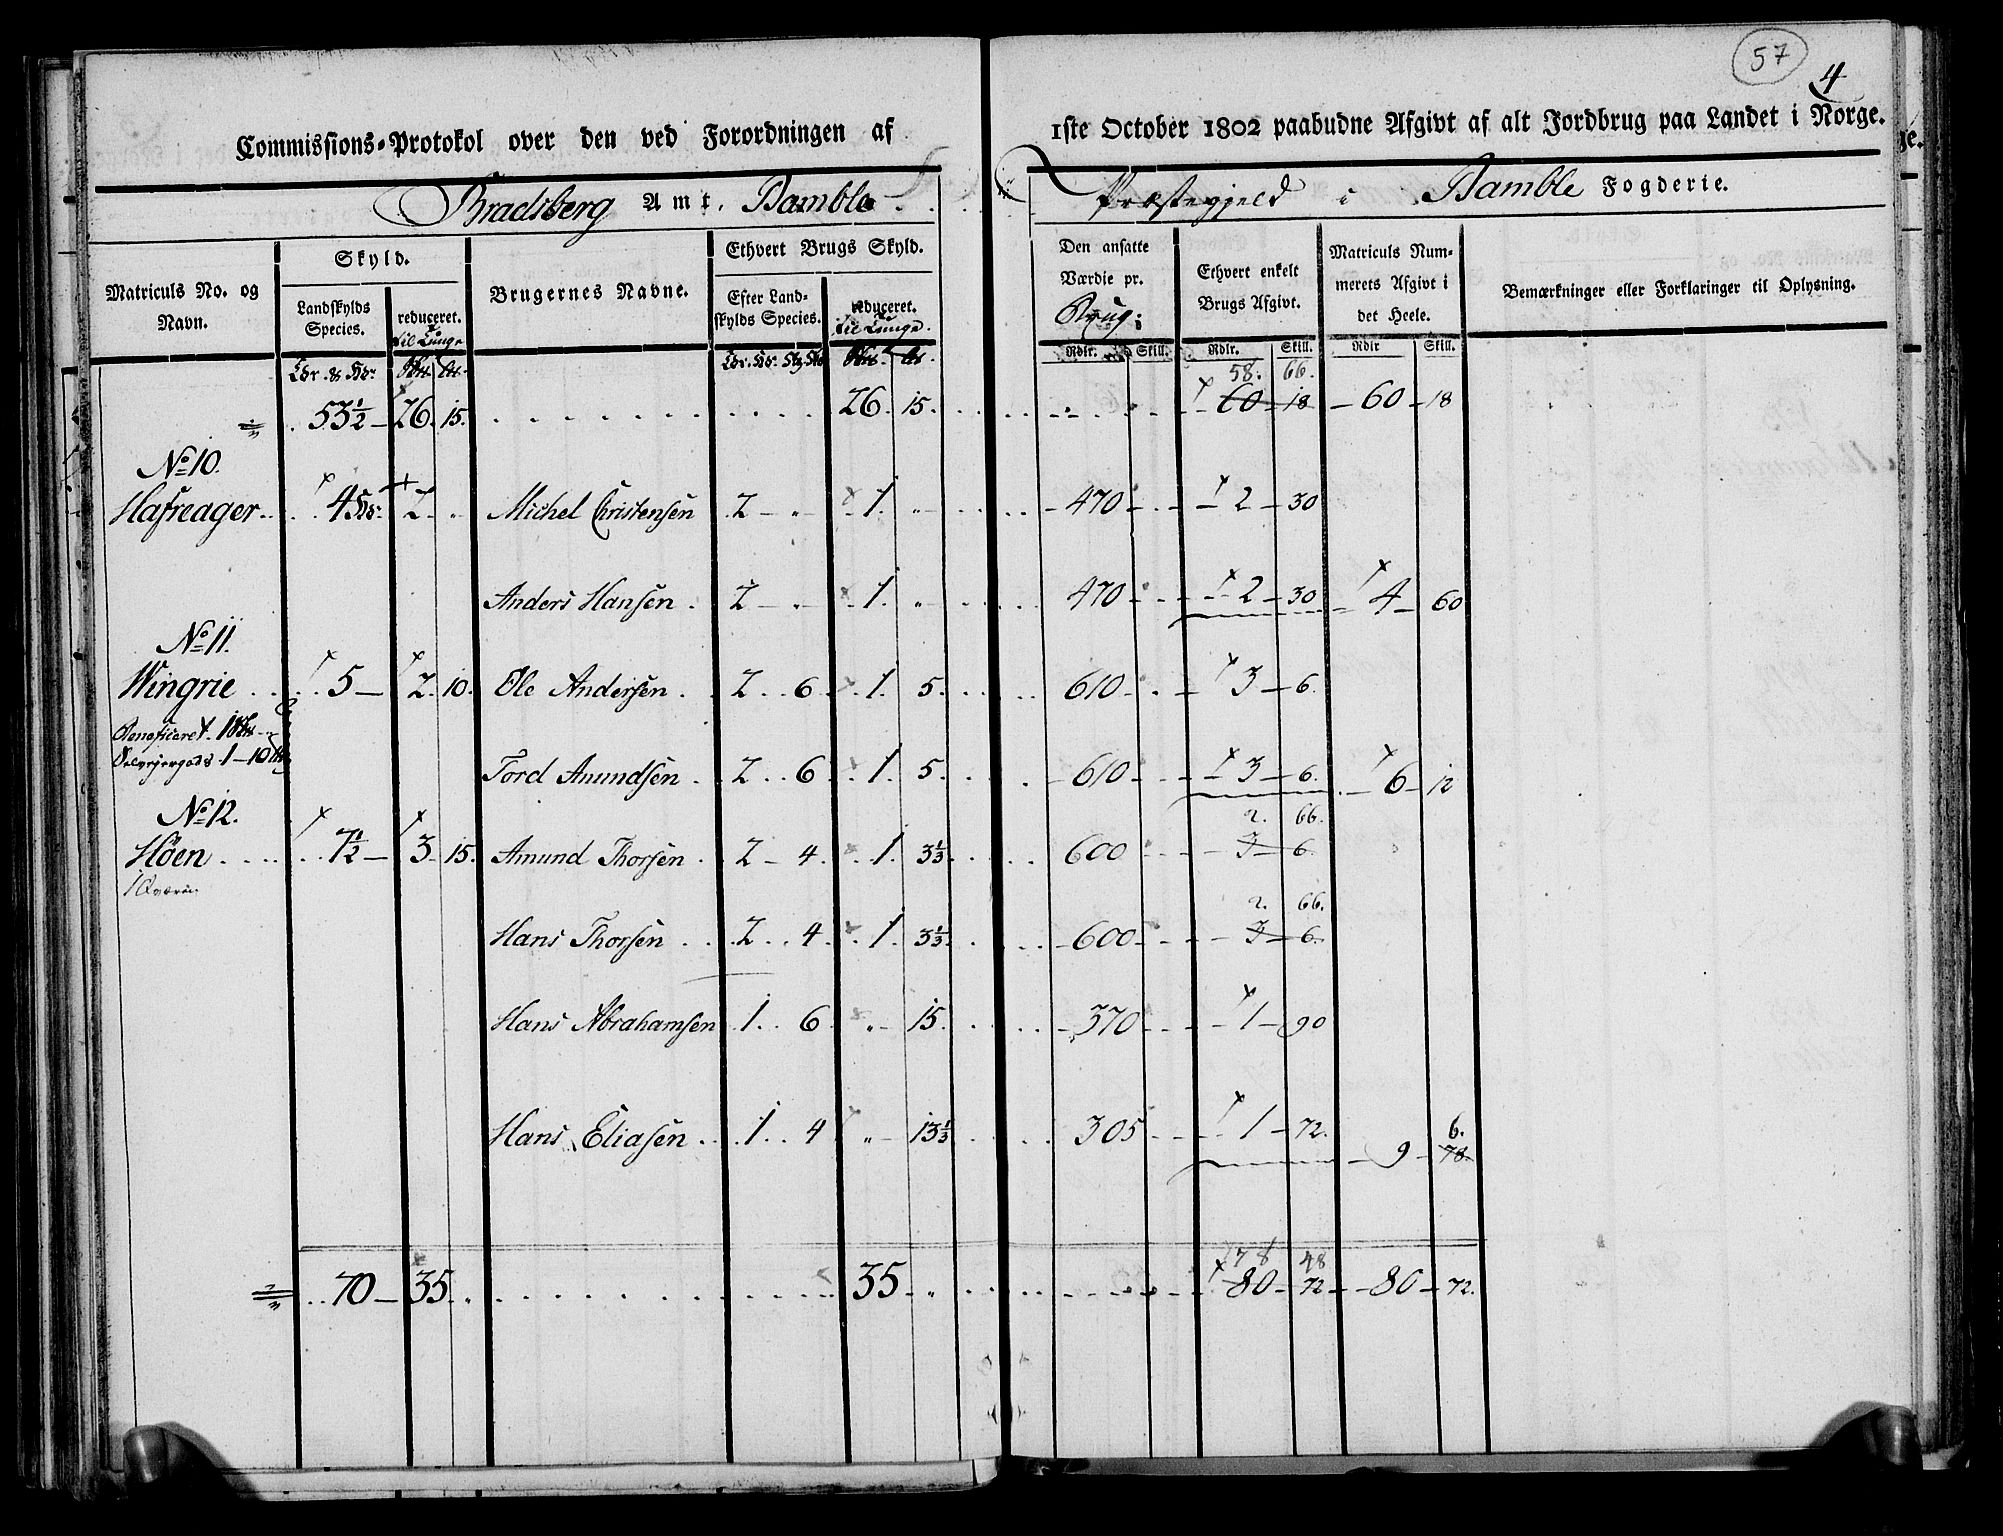 57
4
Commissions-Protokol over den ved Forordningen af 1ste October 1802 paabudne Afgivt af alt Jordbrug paa Landet i Norge.
Bradsberg Amt. Bamble Præstegjeld i Bamble Fogderie.
Matriculs No. og Navn.
Skyld.
Landskylds Species.
reduceret. til Tunge
Brugernes Navne.
Ethvert Brugs Skyld.
Efter Landskylds Species.
reduceret. til Tunge.
Den ansatte Værdie pr. Brug.
Ethvert enkelt Brugs Afgivt.
Matriculs Nummerets Afgivt i det Heele.
Bemærkninger eller Forklaringer til Oplysning.
Rdlr. Skill. Rdlr. Skill. Rdlr Skill.
58. 66.
53½ 26 15. 26 15. 60 18 60 18
No 10.
Hafreager 4 Hdr. 2 „ Michel Christensen 2 „ 1 „ 470 2 30
Anders Hansen 2 „ 1 „ 470 2 30 4 60
No 11.
Wingrie 5 2 10. Ole Andersen 2 6 1 5. 610 3 6.
Beneficeret 1
Selvejergods 1 10
Tord Amundsen 2 6 1 5. 610 3 6. 6 12
No 12.
2. 66.
Höen 7½ 3 15. Amund Thorsen 2 4 1 3⅓ 600 3 6.
1 Qværn
2. 66.
Hans Thorsen 2 4 1 3⅓ 600 3 6.
Hans Abrahamsen 1 6 „ 15. 370 1 90
Hans Eliasen 1 4 „ 13⅓ 305 1 72. 9 78.
6.
78 48
70 35 „ 35 „ 80 72 80 72.